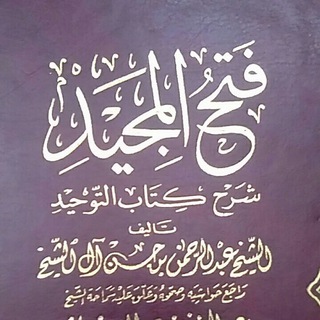 فتح المجيد
شرح كتاب التوحيد
تأليف
الشيخ عبد الرحمن بن حسن آل الشيخ
راجع حواشيه وصححه وعلق عليه سماحة الشيخ